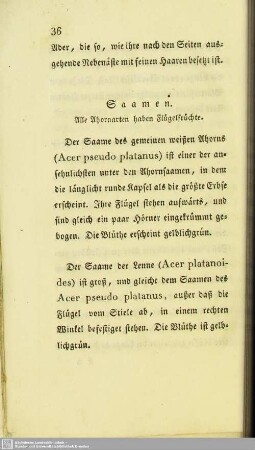 36
Ader, die so, wie ihre nach den Seiten aus-
gehende Nebenäste mit feinen Haaren besetzt ist.
Saamen.
Alle Ahornarten haben Flügelfrüchte.
Der Saame des gemeinen weißen Ahorns
(Acer pseudo platanus) ist einer der an-
sehnlichsten unter den Ahornsaamen, in dem
die länglicht runde Kapsel als die größte Erbse
erscheint. Ihre Flügel stehen aufwärts, und
sind gleich ein paar Hörner eingekrümmt ge-
bogen. Die Blüthe erscheint gelblichgrün.
Der Saame der Lenne (Acer platanoi-
des) ist groß, und gleicht dem Saamen des
Acer pseudo platanus, außer daß die
Flügel vom Stiele ab, in einem rechten
Winkel befestiget stehen. Die Blüthe ist gelb-
lichgrün.